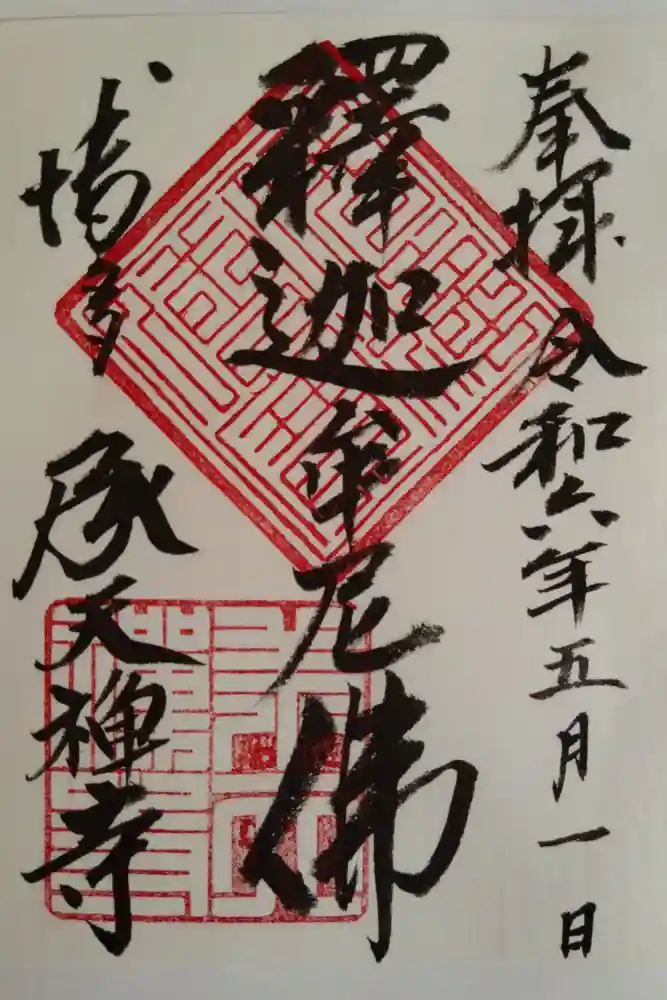 奉拝 令和六年五月一日
釋迦牟尼佛
博多 承天禅寺